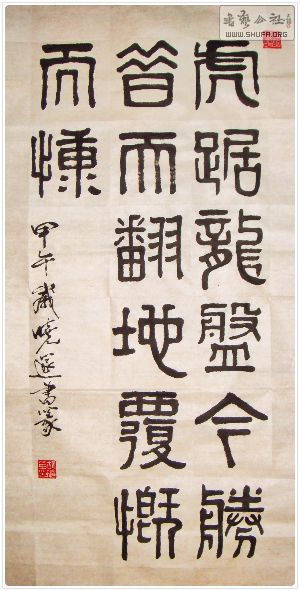 虎踞龍盤今勝
昔天翻地覆慨
而慷
甲午歲曉書篆
書藝公社
WWW.SHUFA.ORG